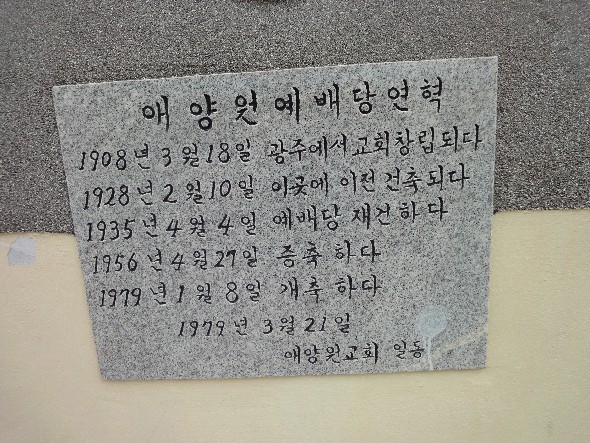 애양원예배당연혁
1908년 3월 18일 광주에서 교회창립되다
1928년 2월 10일 이곳에 이전 건축되다
1935년 4월 4일 예배당 재건하다
1956년 4월 27일 증축 하다
1979년 1월 8일 개축 하다
1979년 3월 21일
애양원교회 일동